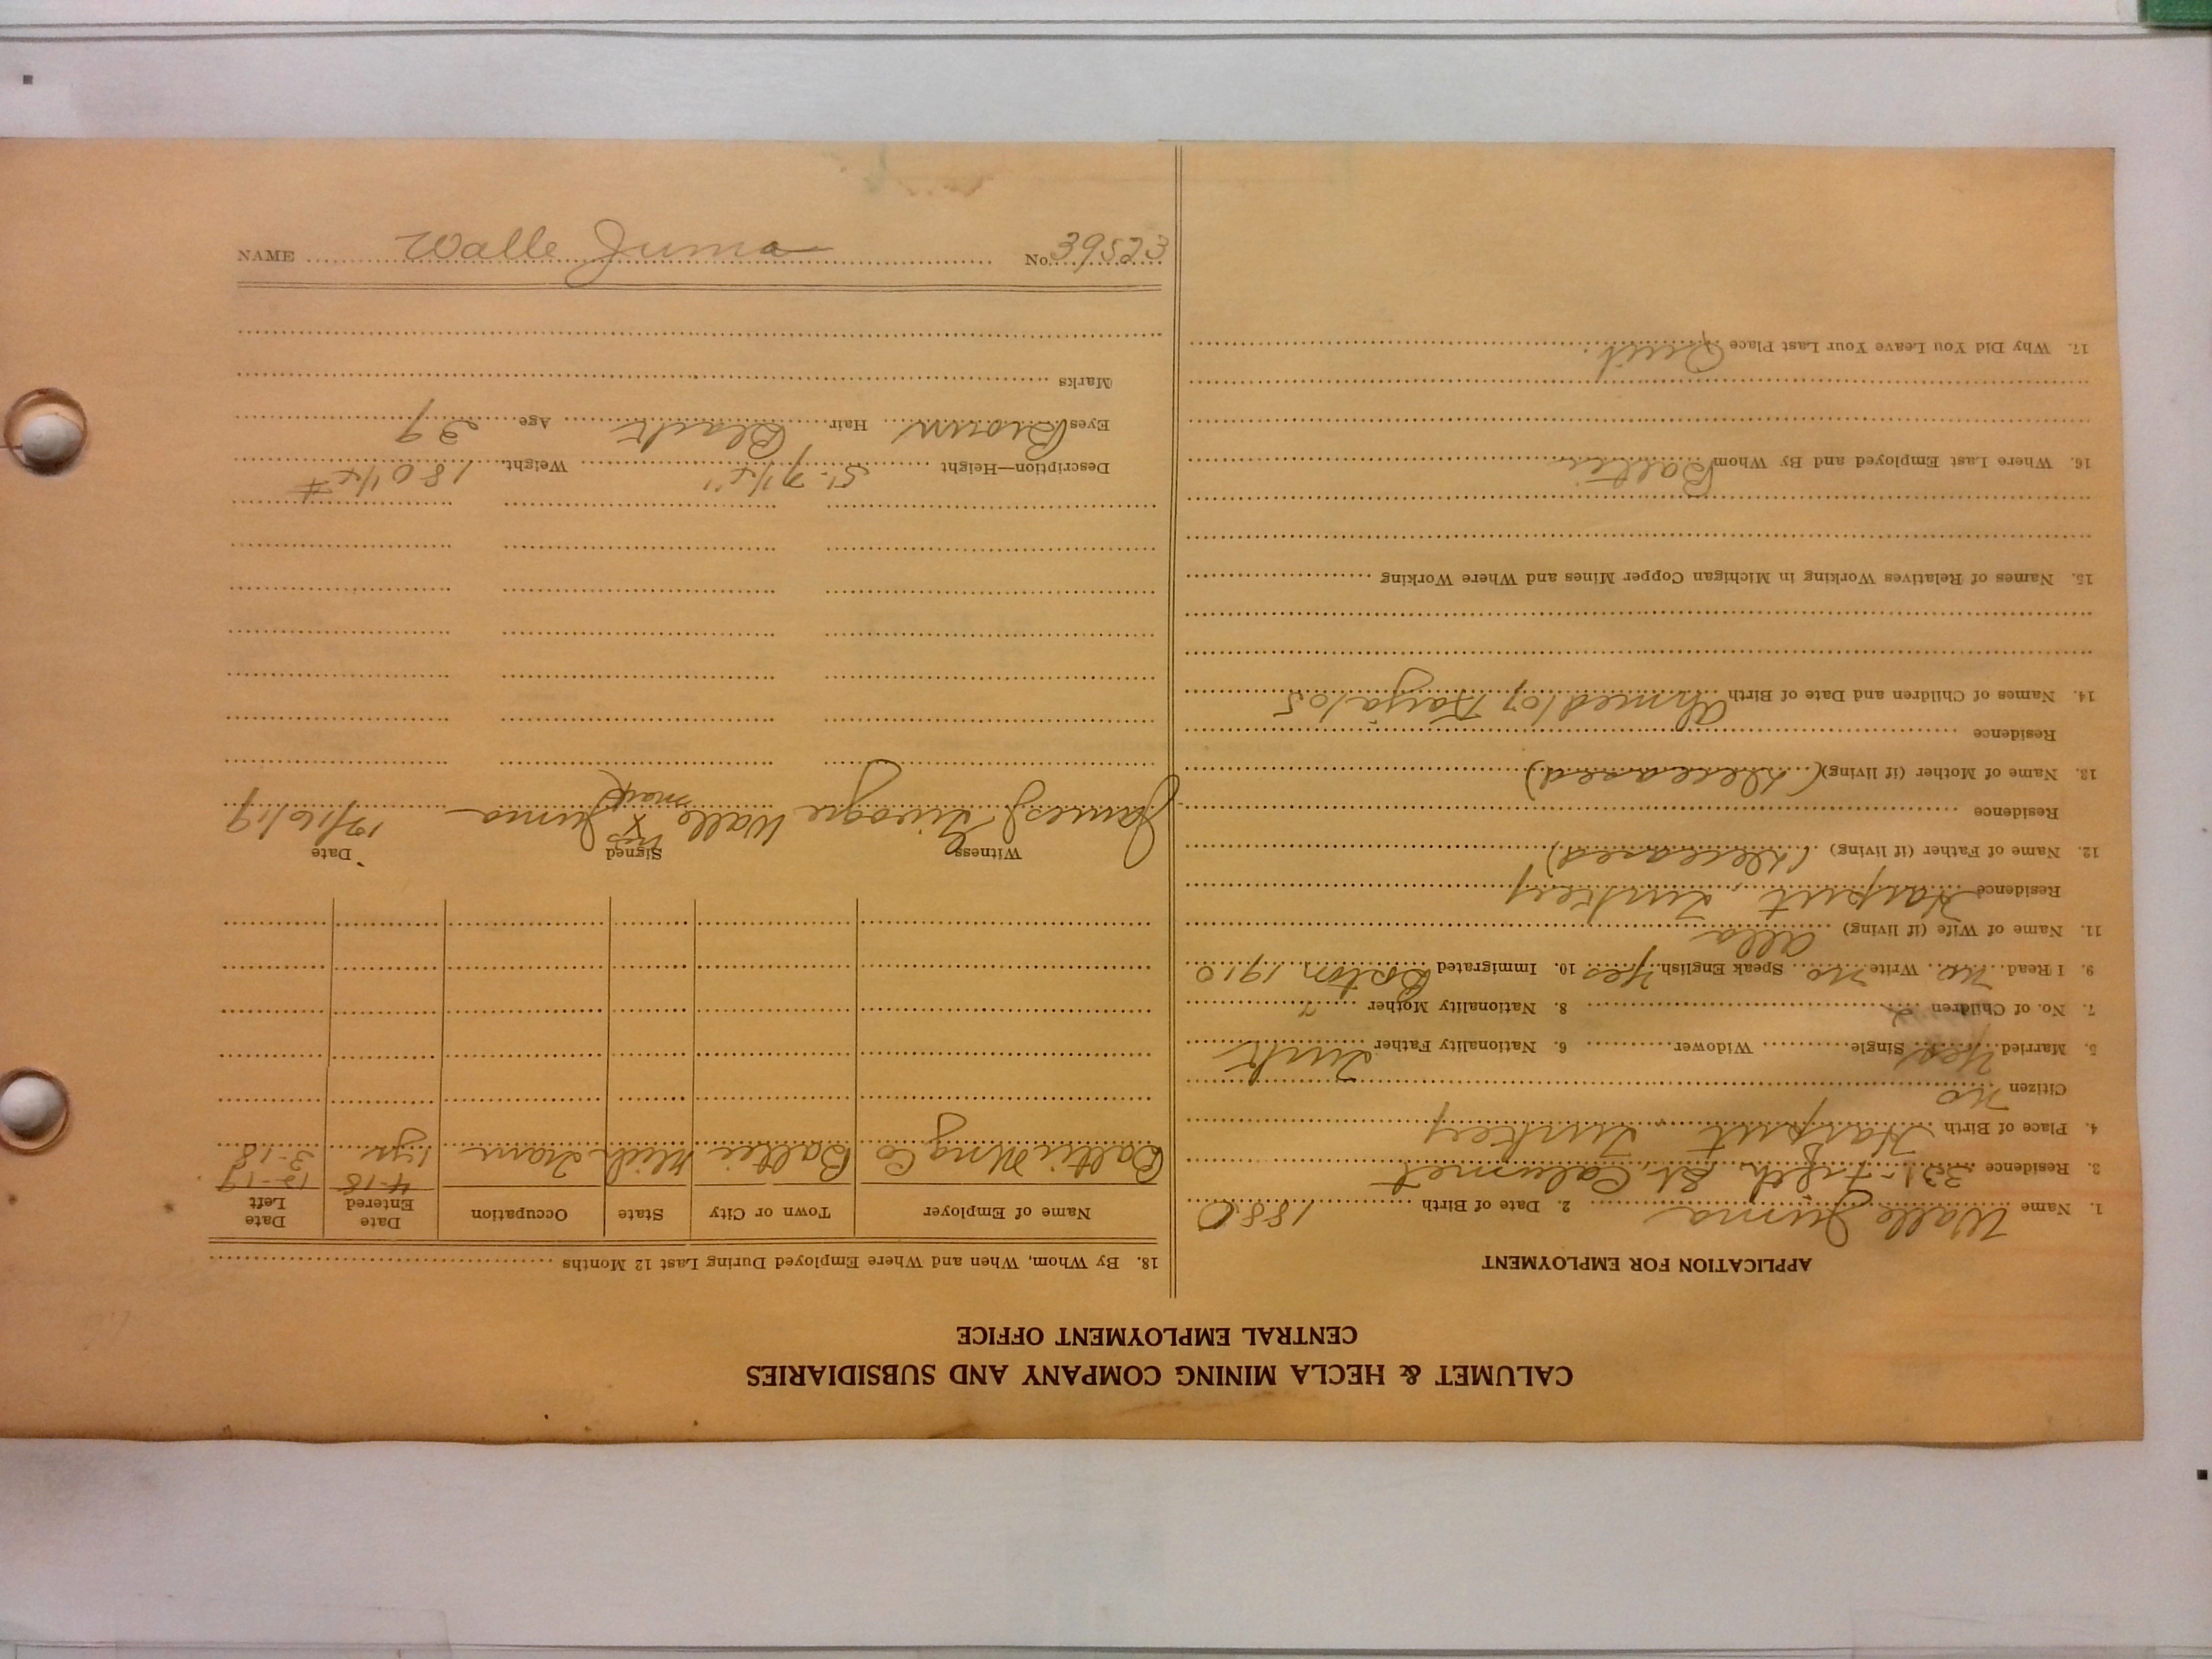 CALUMET & HECLA MINING COMPANY AND SUBSIDIARIES
CENTRAL EMPLOYMENT OFFICE
APPLICATION FOR EMPLOYMENT
1. Name Walle Juma 2. Date of Birth 1880
3. Residence 331- Fifth St. Calumet
4. Place of Birth Harput, Turkey
Citizen no
5. Married Yes Single Widower 6. Nationality Father Turk
7. No. of Children 2 8. Nationality Mother "
9. I Read no Write no Speak English Yes 10. Immigrated Boston 1910
11. Name of Wife (if living) Alla
Residence Harput, Turkey
12. Name of Father (if living) (Deceased)
Residence
13. Name of Mother (if living) (Deceased)
Residence
14. Names of Children and Date of Birth Ahmed/07 /05
15. Names of Relatives Working in Michigan Copper Mines and Where Working
16. Where Last Employed and By Whom Baltic
17. Why Did You Leave Your Last Place Quit.
18. By Whom, When and Where Employed During Last 12 Months
Name of Employer Town or City State Occupation Date Entered Date Left
4-18 12-19
Baltic Mng Co Baltic Mich Tram 1 yr. 3-18
Witness Signed Date
his
James Walle X Juma 12/16/19
mark
Description—Height 5'-7 1/2" Weight 180 1/2 #
Eyes Brown Hair Black Age 39
Marks
NAME Walle Juma No. 39523